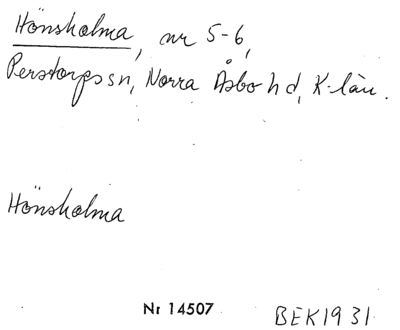 Hönsholma, nr 5-6,
Perstorps sn, Norra Åsbo hd, K-län.
Hönsholma
Nr 14507
BEK1931